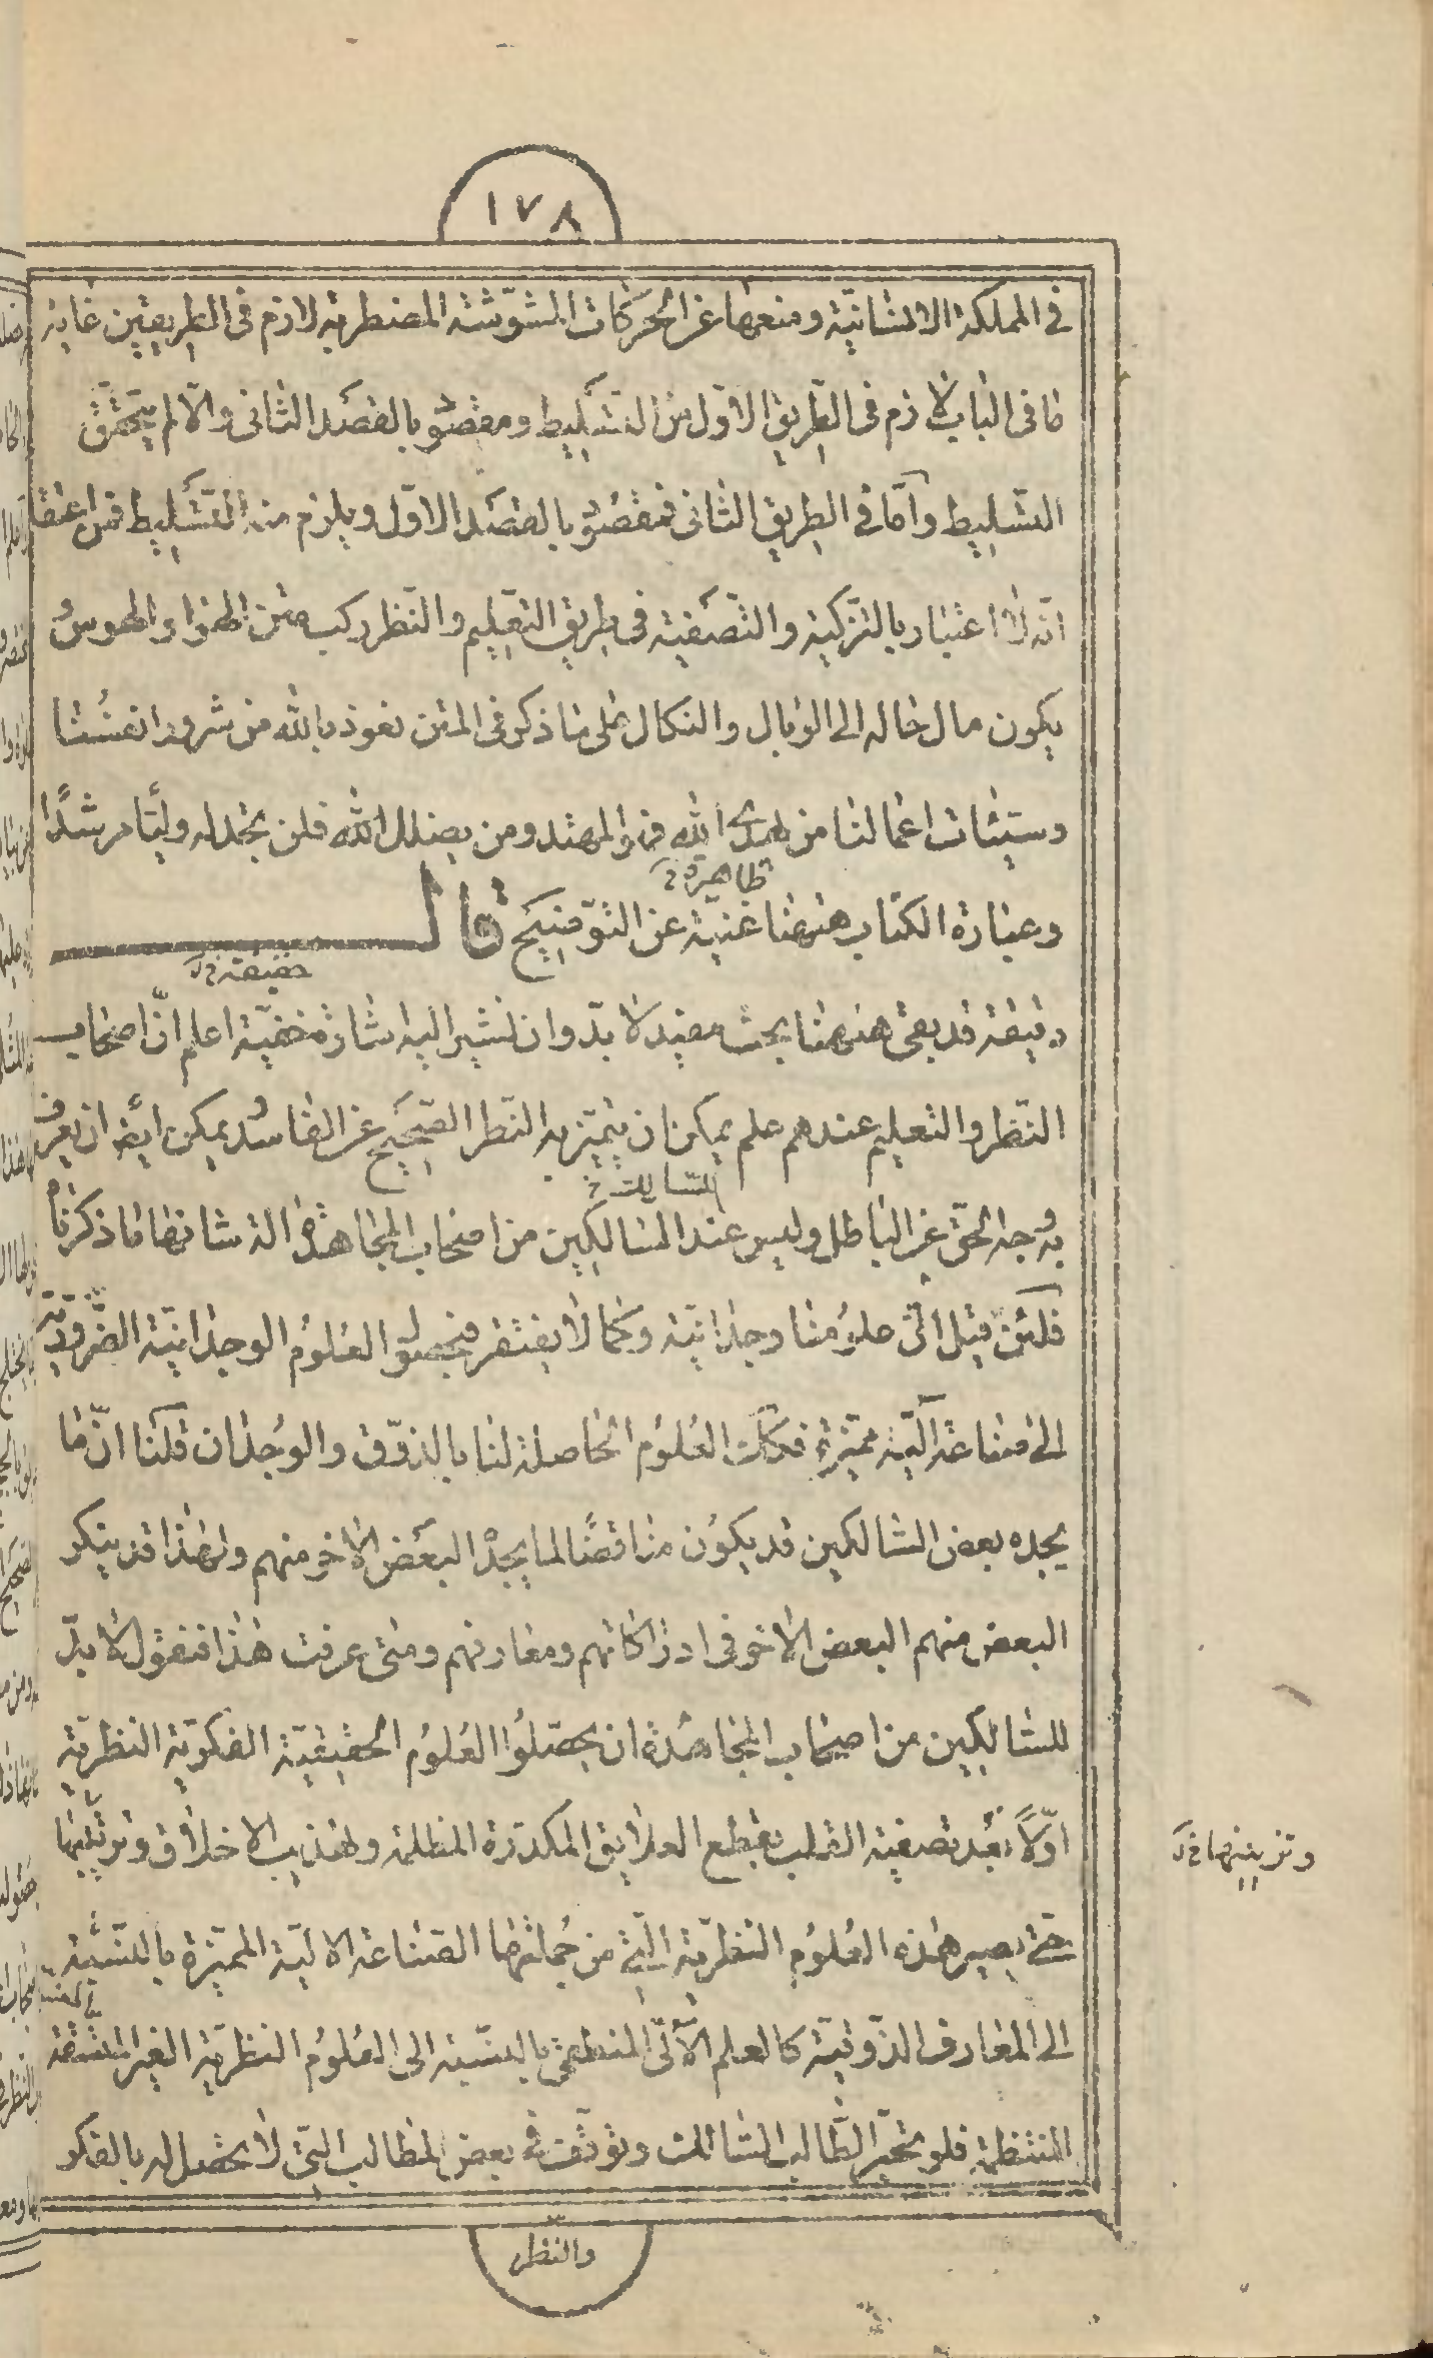 ١٧٨
فى المملكة الانسانيّة ومنعها عن الحركات المشوّشة المضطربة لازم فى الطريقين غاية
ما فى الباب لازم فى الطريق الاوّل من التسليط ومقصود بالقصد الثانى والّا لم يتحقّق
التسليط وامّا فى الطريق الثانى فمقصود بالقصد الاوّل ويلزم منه التسليط فمن اعتقد
انّه لا اعتبار بالتزكية والتصفية فى طريق التعليم والنّظر ركب متن الهواء والهوس و
يكون مال حاله الى الوبال والنكال على ما ذكر فى المتن نعوذ بالله من شرور انفسنا
وسيّئات اعمالنا من يهدى الله فهو المهتد ومن يضلل الله فلن تجد له وليّا مرشدًا
ظاهرة خ
وعبارة الكتاب هيهنا غنيّة عن التوضيح قال
حقيقة خ ل
دقيقة قد بقى هيهنا بحث مفيد لا بدّ وان نشير اليه اشارة خفيّة اعلم انّ اصحاب
النّظر والتعليم عندهم علم يمكن ان يتميّز به النّظر الصّحيح عن الفاسد ويمكن ايضا ان يعرف
السّالك خ
به وجه الحقّ عن الباطل وليس عند السالكين من اصحاب المجاهدة الة شانها ما ذكرناه
فلئن قيل انّ علومنا وجدانيّة وكما لا يفتقر فى حصول العلوم الوجدانيّة الضّروريّة
الى صناعة آليّة مميّزة فكذلك العلوم الحاصلة لنا بالذوق والوجدان قلنا انّ ما
يجده بعض السالكين قد يكون مناقضًا لما يجده البعض الاخر منهم ولهذا قد ينكر
البعض منهم البعض الاخر فى ادراكاتهم ومعارفهم ومتى عرفت هذا فنقول لا بدّ
للسالكين من اصحاب المجاهدة ان يحصّلوا العلوم الحقيقيّة الفكريّة النظريّة
اوّلًا بعد تصفية القلب بقطع العلايق المكدّرة المظلمة وتهذيب الاخلاق وترتيبها
وتزيينها خ ل
حتّى يصير هذه العلوم النظريّة الّتى من جملتها الصّناعة الاليّة المميّزة بالنّسبة
الى المعارف الذّوقيّة كالعلم الآلىّ المنطقىّ بالنّسبة الى العلوم النظريّة الغير المتّسقة
المنتظمة فلو تحيّر الطّالب السّالك وتوقّف فى بعض المطالب الّتى لا يحصل له بالفكر
والنّظر